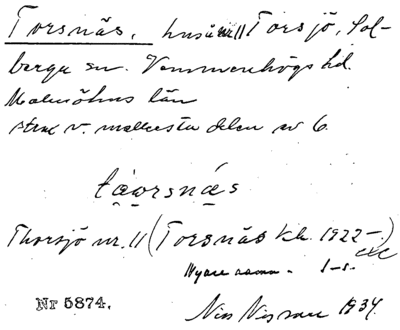 Torsnäs, hus å nr 11 Torsjö, Sol-
berga sn. Vemmenhögs hd.
Malmöhus län
v. mellersta delen av 6.
tȧworsnás
Thorsjö nr. 11 (Torsnäs k.b. 1922 –)
Nyare namn. 1–s.
Nr 5874.
Nils 1934.